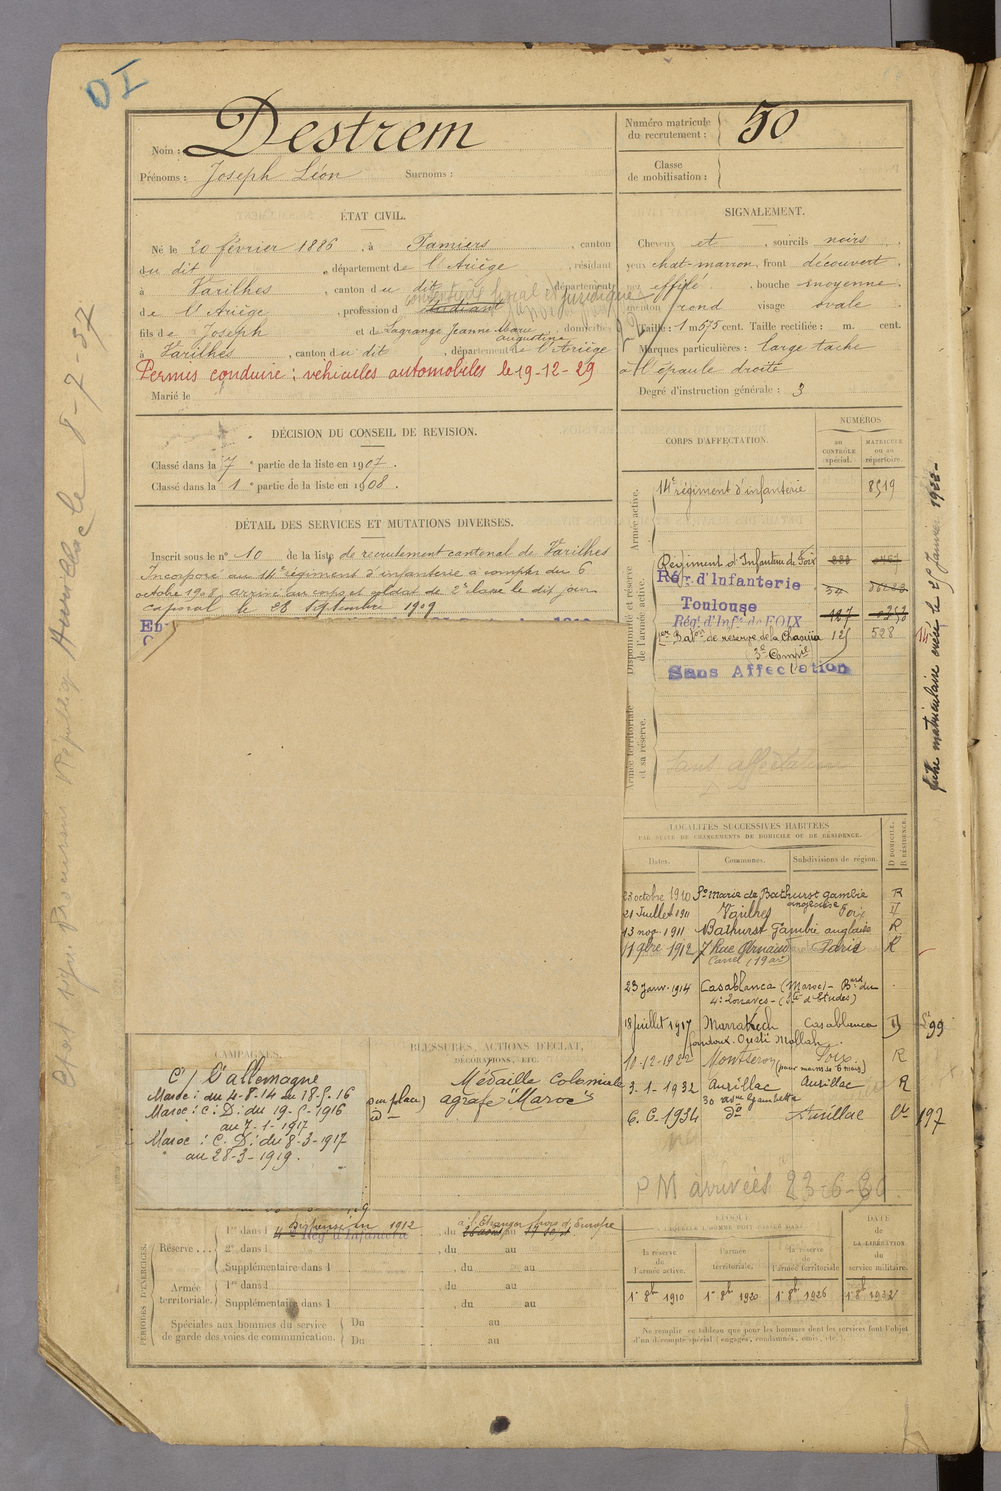 DI
Nom : Destrem
Prénoms : Joseph Léon Surnoms :
Numéro matricule du recrutement : 50
Classe de mobilisation :
ÉTAT CIVIL.
Né le 20 février 1886, à Pamiers, canton
du dit, département de l'Ariège, résidant
à Varilhes, canton du dit, département
de l'Ariège, profession d étudiant
fils de Joseph et de Lagrange Jeanne Marie Augustine, domiciliés
à Varilhes, canton du dit, département de l'Ariège
Permis conduire : véhicules automobiles le 19-12-29
Marié le
SIGNALEMENT.
Cheveux et, sourcils noirs
yeux chat-marron, front découvert
nez effilé, bouche moyenne
menton rond visage ovale
Taille : 1 m 575 cent. Taille rectifiée : m. cent.
Marques particulières : large tache
à l'épaule droite
Degré d'instruction générale : 3
DÉCISION DU CONSEIL DE REVISION.
Classé dans la 7e partie de la liste en 1907.
Classé dans la 1e partie de la liste en 1908.
DÉTAIL DES SERVICES ET MUTATIONS DIVERSES.
Inscrit sous le no 10 de la liste de recrutement cantonal de Varilhes
Incorporé au 14e régiment d'infanterie à compter du 6
octobre 1908, arrivé au corps et soldat de 2e classe le dit jour
caporal le 28 septembre 1909
CORPS D'AFFECTATION.
NUMÉROS
au CONTRÔLE spécial.
MATRICULE OU AU répertoire.
Armée active.
14e régiment d'infanterie 8519
Disponibilité et réserve de l'armée active.
Régiment d'Infanterie de Foix
Rég. d'Infanterie
Toulouse
Rég.t d'Inf.ie de FOIX
1er Baton de reserve de la Chasma 125 528
3e Compie
Sans Affectation
Armée territoriale et sa réserve.
Sans affectation
LOCALITÉS SUCCESSIVES HABITÉES
PAR SUITE DE CHANGEMENTS DE DOMICILE OU DE RÉSIDENCE.
Dates. Communes. Subdivisions de région. D DOMICILE. R RÉSIDENCE.
23 octobre 1910 Ste Marie de Bathurst gambie anglaise R
21 Juillet 1911 Varilhes Foix D
13 nov. 1911 Bathurst Gambie anglaise R
11 9bre 1912 7 Rue Ornano Paris R
23 Janv. 1914 Casablanca (Maroc) - Bard du
4e Zouaves - (Ste d'Etudes)
18 juillet 1917 Marrakech Casablanca D 99
fondouk. Ousti Mallah.
10-12-1922 Montseron Foix. R
(pour moins de 6 mois)
3-1-1932 Aurillac Aurillac R
30 avue Gambetta
6.6-1934 do Aurillac 197
PM arrivées 23-6-30.
CAMPAGNES.
C/ L'allemagne
Maroc : du 4-8-14 au 18-5-16
Maroc : C. D : du 19-5-1916
au 7-1-1917
Maroc : C. D : du 8-3-1917
au 28-3-1919.
BLESSURES, ACTIONS D'ÉCLAT,
DÉCORATIONS, ETC.
Médaille coloniale
agrafe "Maroc"
PÉRIODES D'EXERCICES.
Réserve... 1re dans l Dispensé en 1912 du au
à l'Etranger hors d'Europe
4e Rég d'Infanterie
2e dans l, du au
Supplémentaire dans l, du au
Armée territoriale. 1re dans l du au
Supplémentaire dans l, du au
Spéciales aux hommes du service de garde des voies de communication. Du au
Du au
ÉPOQUE
À LAQUELLE L'HOMME DOIT PASSER DANS
la réserve de l'armée active. l'armée territoriale. la réserve de l'armée territoriale
DATE de LA LIBÉRATION du service militaire.
1er 8bre 1910 1er 8bre 1920 1er 8bre 1926 1er 8bre 1932
Ne remplir ce tableau que pour les hommes dont les services font l'objet
d'un décompte spécial (engagés, condamnés, omis, etc.).
fiche matriculaire créée le 25 Janvier 1922